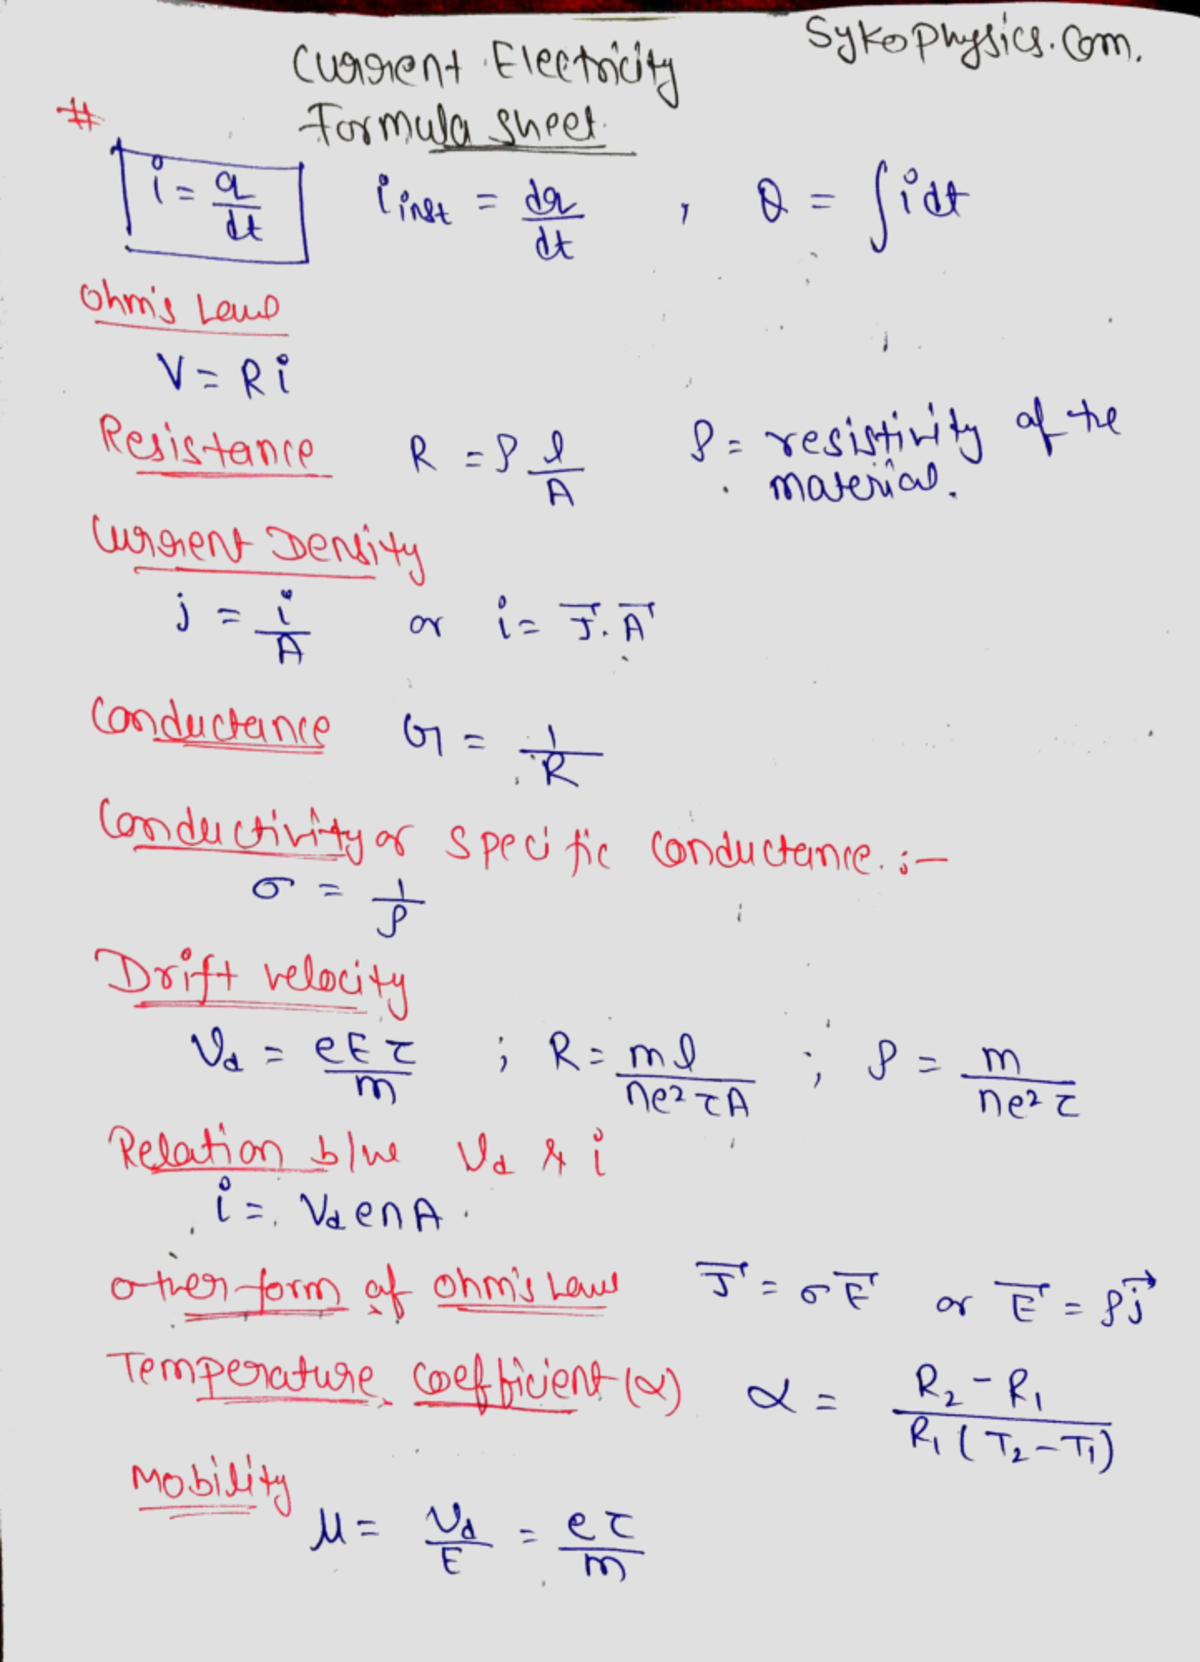 Sykophysics.com.
Current Electricity
Formula sheet.
#
i = q/dt    i inst = dq/dt , Q = ∫idt
Ohm's Law
V = Ri
Resistance R = ρ l/A    ρ = resistivity of the
material.
Current Density
j = i/A or i = J⃗.A⃗
Conductance G = 1/R
Conductivity or specific conductance. :-
σ = 1/ρ
Drift velocity
Vd = eEτ/m ; R = ml/ne²τA ; ρ = m/ne²τ
Relation b/w Vd & i
i = VdenA.
other form of ohm's Law J⃗ = σE⃗ or E⃗ = ρj⃗
Temperature coefficient (α) α = R₂-R₁/R₁(T₂-T₁)
Mobility
μ = Vd/E = eτ/m